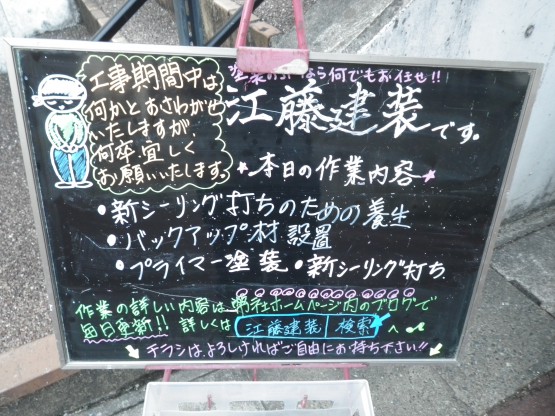 工事期間中は
何かとおさわがせ
いたしますが、
何卒宜しく
お願いいたします。
なら何でもお任せ!!
江藤建装です。
★本日の作業内容★
・新シーリング打ちのための養生
・バックアップ材設置
・プライマー塗装・新シーリング打ち
作業の詳しい内容は弊社ホームページ内のブログで
毎日更新!!詳しくは 江藤建装 検索 へ
チラシは、よろしければご自由にお持ち下さい!!